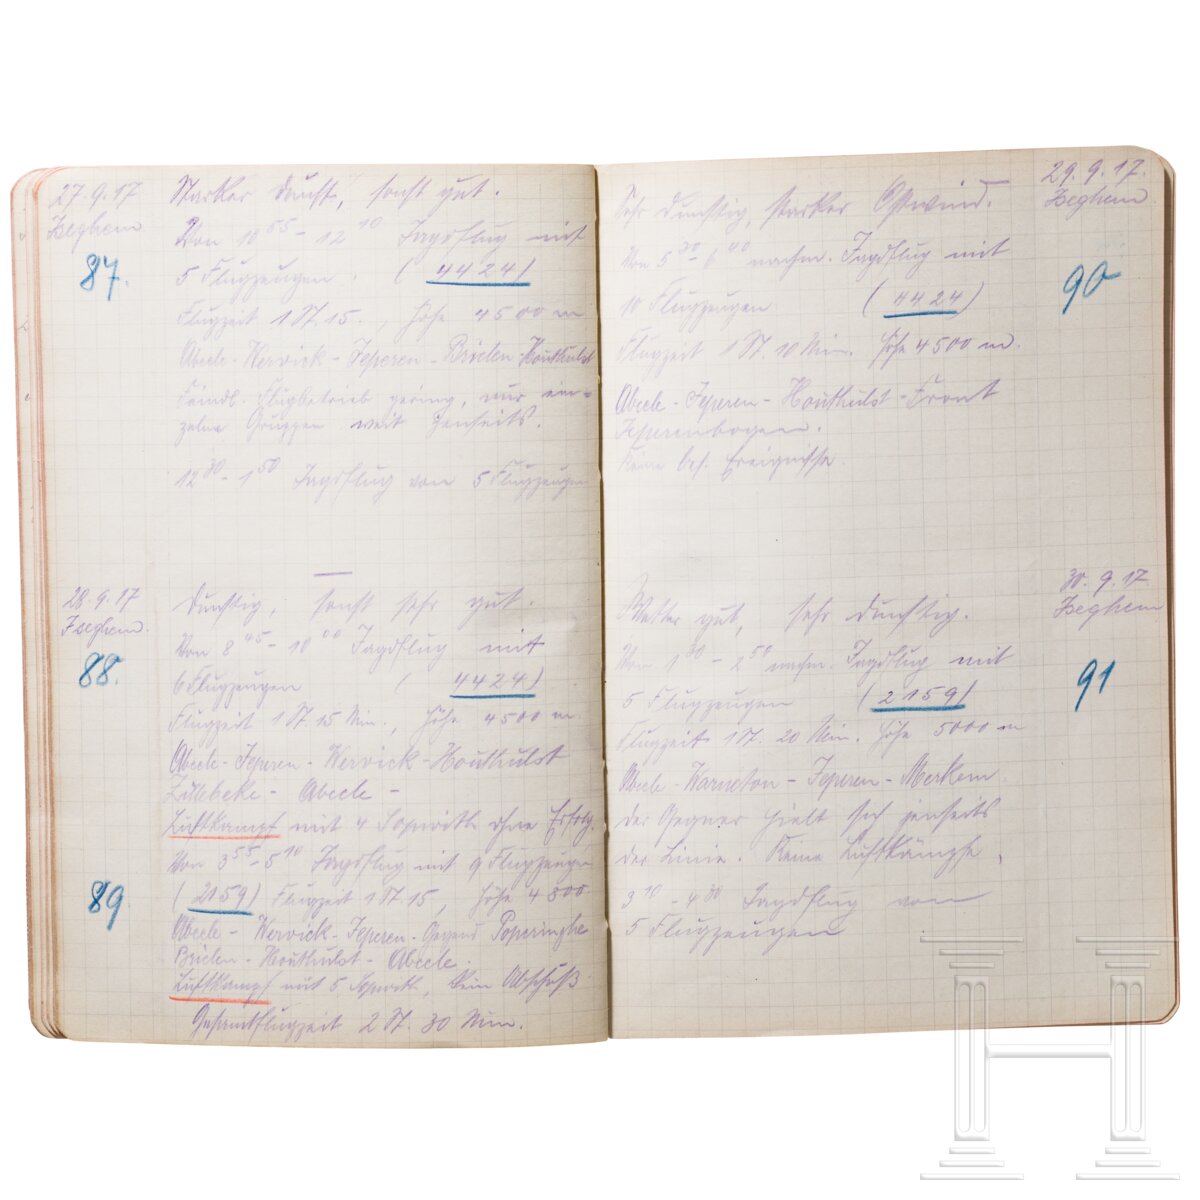 27.9.17
Iseghem
87.
Starker Dunst, sonst gut.
Von 10 55 - 12 10 Jagdflug mit
5 Flugzeugen. (4424)
Flugzeit 1 St. 15., Höhe 4500 m
Abeele - Wervick - Jeperen - Brielen - Houthulst
Feindl. Flugbetrieb gering, nur ein-
zelne Gruppen weit jenseits.
12 30 - 1 50 Jagdflug von 5 Flugzeugen
28.9.17
Iseghem.
88.
Dunstig, sonst sehr gut.
Von 8 45 - 10 00 Jagdflug mit
6 Flugzeugen (4424)
Flugzeit 1 St 15 Min., Höhe 4500 m
Abeele - Jeperen - Wervick - Houthulst
Zillebeke - Abeele -
Luftkampf mit 4 Sopwith ohne Erfolg.
89
Von 3 55 - 5 10 Jagdflug mit 9 Flugzeugen
(2159) Flugzeit 1 St 15, Höhe 4800
Abeele - Wervick - Jeperen - Gegend Poperinghe
Brielen - Houthulst - Abeele.
Luftkampf mit 5 Sopwith, kein Abschuß
Gesamtflugzeit 2 St. 30 Min.
29.9.17.
Iseghem
90
Sehr dunstig, starker Ostwind.
Von 5 30 - 6 40 nachm. Jagdflug mit
10 Flugzeugen (4424)
Flugzeit 1 St. 10 Min. Höhe 4500 m.
Abeele - Jeperen - Houthulst - Front
Jeperenbogen.
Keine bes. Ereignisse.
30.9.17
Iseghem
91
Wetter gut, sehr dunstig.
Von 1 30 - 2 50 nachm. Jagdflug mit
5 Flugzeugen (2159)
Flugzeit 1 St. 20 Min. Höhe 5000 m
Abeele - Warneton - Jeperen - Merkem
der Gegner hielt sich jenseits
der Linie. Keine Luftkämpfe.
3 10 - 4 30 Jagdflug von
5 Flugzeugen